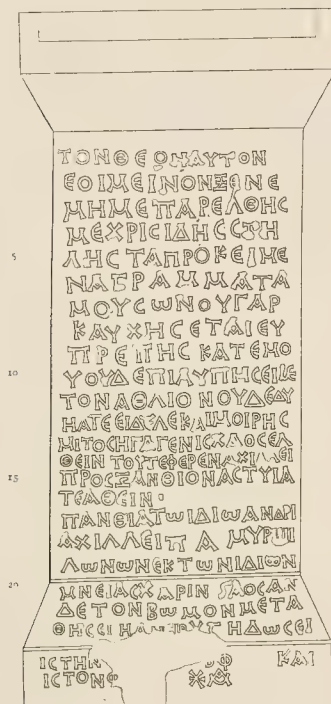 ΤΟΝΘΕΟΝΑΥΤΟΝ
ΕΟΙΜΕΙΝΟΝΞΕΙΝΕ
ΜΗΜΕΠΑΡΕΛΘΗC
ΜΕΧΡΙCΙΔΗCCΤΗ
5 ΛΗCΤΑΠΡΟΚΕΙΜΕ
ΝΑΓΡΑΜΜΑΤΑ
ΜΟΥCωΝΟΥΓΑΡ
ΚΑΥΧΗCΕΤΑΙΕΥ
ΠΡΕΠΗCΚΑΤΕΜΟ
10 ΥΟΥΔΕΠΙΛΥΠΗCΕΙΔΕ
ΤΟΝΑΘΛΙΟΝΟΥΔΕΔΥ
ΗΑΤΕΕΙΔΛΕΚΑΙΜΟΙΡΗC
ΜΙΤΟCΗΓΑΓΕΝΙCΧΑΟCΕΛ
ΘΕΙΝΤΟΥΤΕΦΕΡΕΝΑΧΙΛΛΕΙ
15 ΠΡΟCΞΑΝΘΙΟΝΑCΤΥΙΑ
ΤΕΛΘΕΙΝ·
ΠΑΝΘΙΑΤωΙΔΙωΑΝΔΡΙ
ΑΧΙΛΛΕΙΠΑΜΥΡΙΙΙ
ΛωΝωΝΕΚΤωΝΙΔΙωΝ
20 ΜΝΕΙΑCΧΑΡΙΝ ΑΟCΑΝ
ΔΕΤΟΝΒωΜΟΝΜΕΤΑ
ΘΗCCΙΗΑ ΗΔωCΕΙ
ΙCΤΗΝ ωΦ ΚΑΙ
ΙCΤΟΝΦ